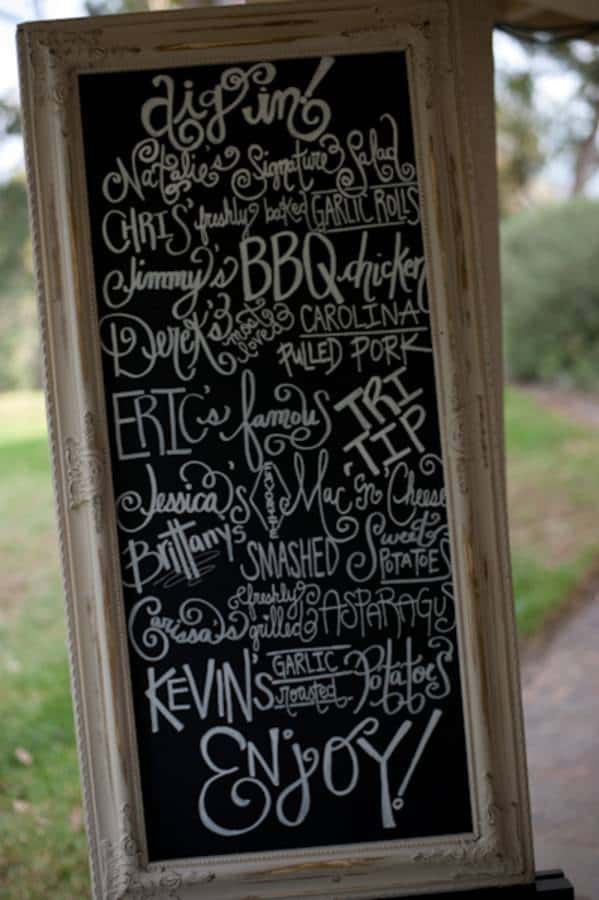 dig in!
Natalie's Signature Salad
CHRIS' freshly baked GARLIC ROLLS
Jimmy's BBQ chicken
Derek's most loved CAROLINA PULLED PORK
ERIC's famous TRI TIP
Jessica's FAVORITE Mac 'n' Cheese
Brittany's SMASHED Sweet POTATOES
Carissa's freshly grilled ASPARAGUS
KEVIN'S GARLIC roasted Potatoes
ENjOY!